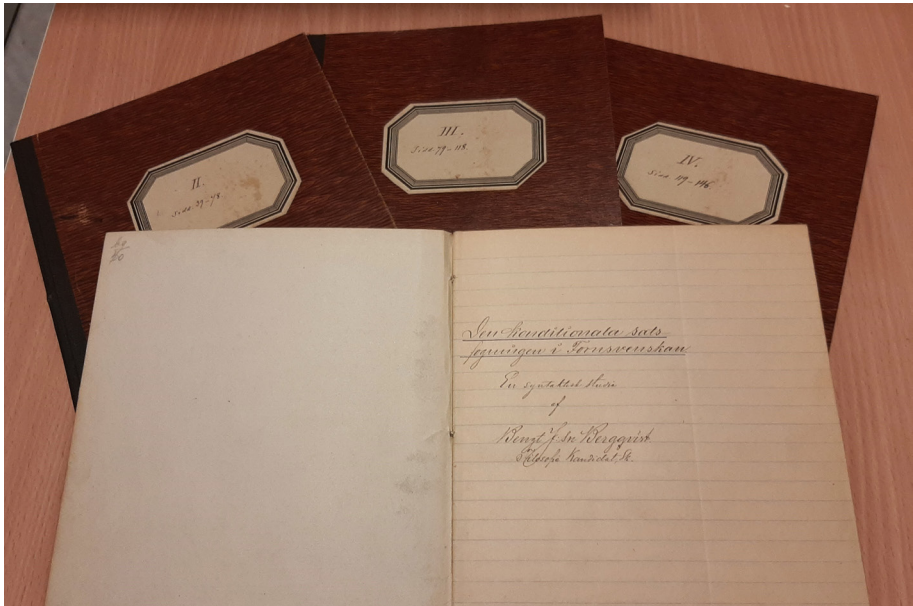 II.
Sidd. 39-78.
III.
Sidd. 79-118.
IV.
Sidd. 119-146
Den konditionala sats
fogningen i Fornsvenskan
En syntaktisk studie
af
Bengt J:sn Bergqvist
Filosofie Kandidat,